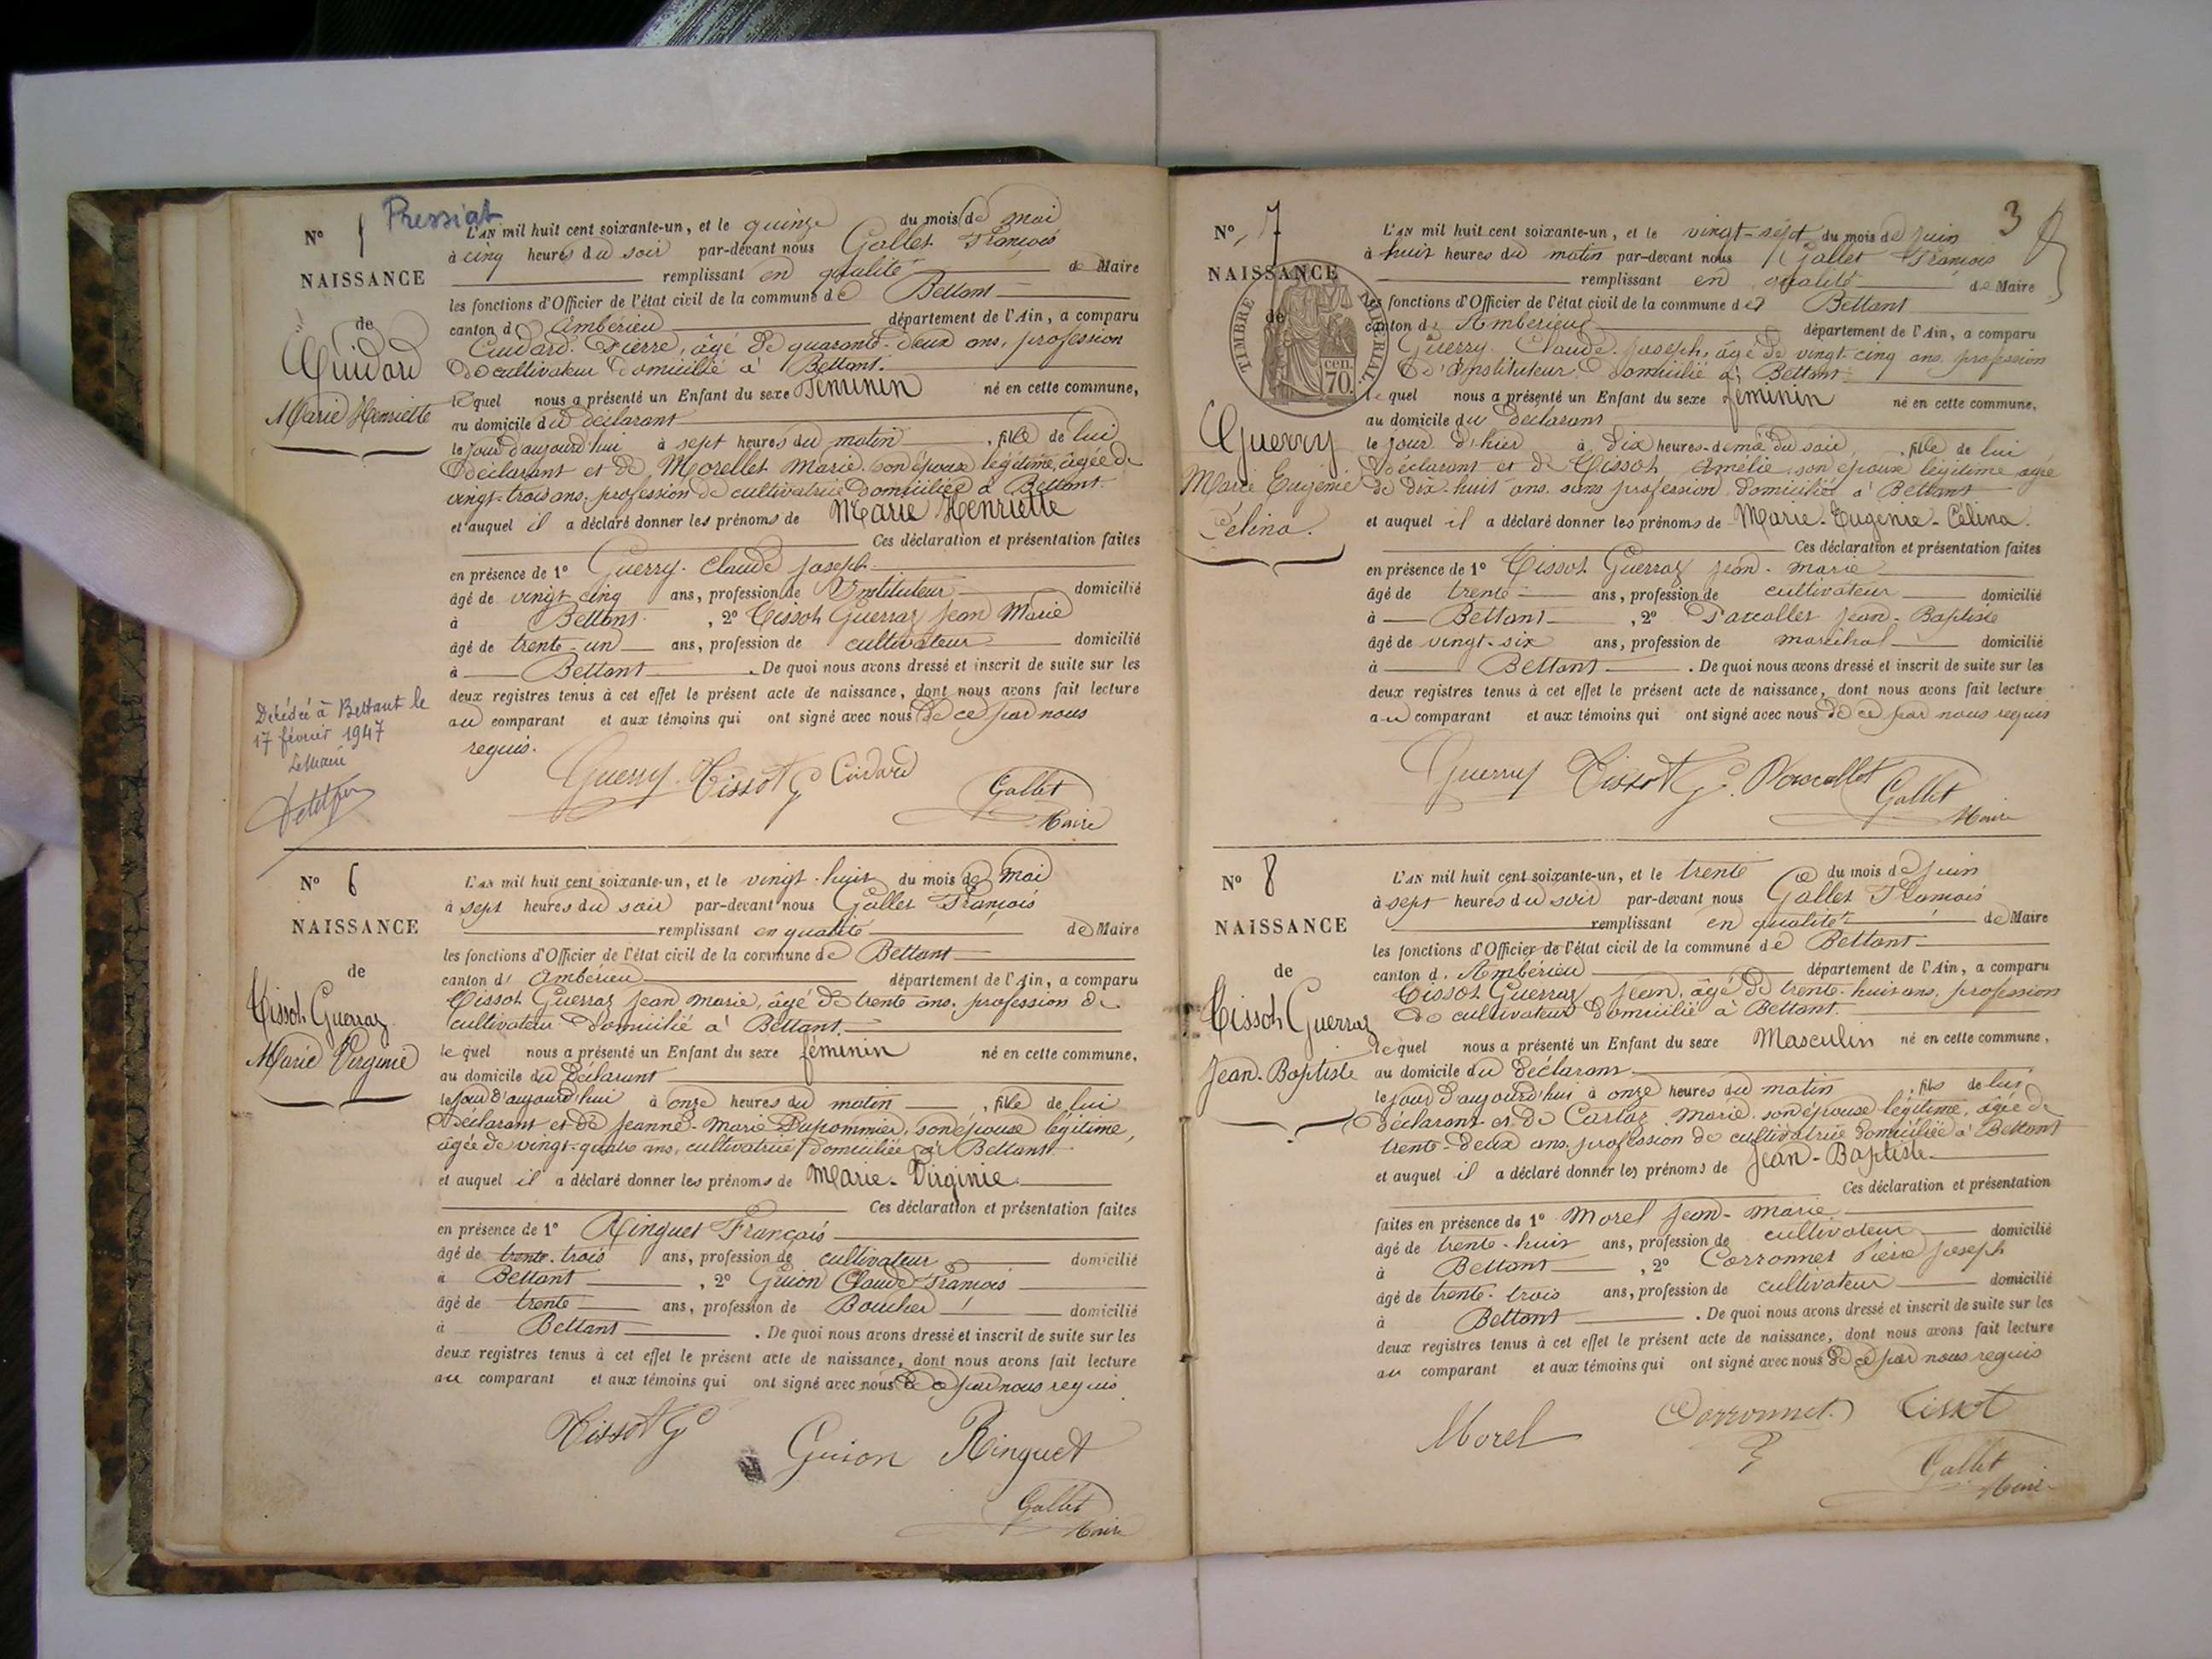 Pressiat
N° 5
NAISSANCE
de
Cuidard
Marie Henriette
L'AN mil huit cent soixante-un, et le quinze du mois de mai
à cinq heures du soir par-devant nous Gallet François
remplissant en qualité de Maire
les fonctions d'Officier de l'état civil de la commune de Bettant
canton d'Ambérieu département de l'Ain, a comparu
Cuidard Pierre, âgé de quarante-deux ans, profession
de cultivateur domicilié à Bettant.
lequel nous a présenté un Enfant du sexe Féminin né en cette commune,
au domicile du déclarant
le jour d'aujourd'hui à sept heures du matin, fille de lui
déclarant et de Morellet Marie son épouse légitime, âgée de
vingt-trois ans, profession de cultivatrice domiciliée à Bettant.
et auquel il a déclaré donner les prénoms de Marie Henriette
Ces déclaration et présentation faites
en présence de 1° Guerry Claude Joseph
âgé de vingt cinq ans, profession de Instituteur domicilié
à Bettant, 2° Tissot Guerraz Jean Marie
âgé de trente-un ans, profession de cultivateur domicilié
à Bettant. De quoi nous avons dressé et inscrit de suite sur les
deux registres tenus à cet effet le présent acte de naissance, dont nous avons fait lecture
au comparant et aux témoins qui ont signé avec nous de ce par nous
requis.
Guerry Tissot G Cuidard
Gallet
Maire
Décédée à Bettant le
17 février 1947
Le Maire
N° 6
NAISSANCE
de
Tissot Guerraz
Marie Virginie
L'AN mil huit cent soixante-un, et le vingt-huit du mois de Mai
à sept heures du soir par-devant nous Gallet François
remplissant en qualité de Maire
les fonctions d'Officier de l'état civil de la commune de Bettant
canton d'Ambérieu département de l'Ain, a comparu
Tissot Guerraz Jean Marie, âgé de trente ans, profession de
cultivateur domicilié à Bettant.
lequel nous a présenté un Enfant du sexe féminin né en cette commune,
au domicile du déclarant
le jour d'aujourd'hui à onze heures du matin, fille de lui
déclarant et de Jeanne-Marie Dupommier, son épouse légitime,
âgée de vingt-quatre ans, cultivatrice domiciliée à Bettant
et auquel il a déclaré donner les prénoms de Marie-Virginie.
Ces déclaration et présentation faites
en présence de 1° Ringuet François
âgé de trente-trois ans, profession de cultivateur domicilié
à Bettant, 2° Guion Claude François
âgé de trente ans, profession de Boucher domicilié
à Bettant. De quoi nous avons dressé et inscrit de suite sur les
deux registres tenus à cet effet le présent acte de naissance, dont nous avons fait lecture
au comparant et aux témoins qui ont signé avec nous de ce par nous requis
Tissot G
Guion Ringuet
Gallet
Maire
3
N° 7
NAISSANCE
de
TIMBRE IMPÉRIAL
70 cen.
Guerry
Marie Eugénie
Célina.
L'AN mil huit cent soixante-un, et le vingt-sept du mois de juin
à huit heures du matin par-devant nous Gallet François
remplissant en qualité de Maire
les fonctions d'Officier de l'état civil de la commune de Bettant
canton d'Ambérieu département de l'Ain, a comparu
Guerry Claude Joseph, âgé de vingt-cinq ans, profession
d'Instituteur domicilié à Bettant
lequel nous a présenté un Enfant du sexe féminin né en cette commune,
au domicile du déclarant
le jour d'hier à dix heures-demie du soir, fille de lui
déclarant et de Tissot Amélie, son épouse légitime âgée
de dix-huit ans, sans profession, domiciliée à Bettant
et auquel il a déclaré donner les prénoms de Marie-Eugénie-Célina.
Ces déclaration et présentation faites
en présence de 1° Tissot Guerraz Jean-Marie
âgé de trente ans, profession de cultivateur domicilié
à Bettant, 2° Jean-Baptiste
âgé de vingt-six ans, profession de maréchal domicilié
à Bettant. De quoi nous avons dressé et inscrit de suite sur les
deux registres tenus à cet effet le présent acte de naissance, dont nous avons fait lecture
au comparant et aux témoins qui ont signé avec nous de ce par nous requis
Guerry Tissot G
Gallet
Maire
N° 8
NAISSANCE
de
Tissot Guerraz
Jean-Baptiste
L'AN mil huit cent soixante-un, et le trente du mois de juin
à sept heures du soir par-devant nous Gallet François
remplissant en qualité de Maire
les fonctions d'Officier de l'état civil de la commune de Bettant
canton d'Ambérieu département de l'Ain, a comparu
Tissot Guerraz Jean, âgé de trente-huit ans, profession
de cultivateur domicilié à Bettant.
lequel nous a présenté un Enfant du sexe Masculin né en cette commune,
au domicile du déclarant
le jour d'aujourd'hui à onze heures du matin, fils de lui
déclarant et de Cartaz Marie son épouse légitime, âgée de
trente-deux ans, profession de cultivatrice domiciliée à Bettant
et auquel il a déclaré donner les prénoms de Jean-Baptiste
Ces déclaration et présentation
faites en présence de 1° Morel Jean-Marie
âgé de trente-huit ans, profession de cultivateur domicilié
à Bettant, 2° Corronnet Pierre Joseph
âgé de trente-trois ans, profession de cultivateur domicilié
à Bettant. De quoi nous avons dressé et inscrit de suite sur les
deux registres tenus à cet effet le présent acte de naissance, dont nous avons fait lecture
au comparant et aux témoins qui ont signé avec nous de ce par nous requis
Morel Corronnet Tissot
Gallet
Maire